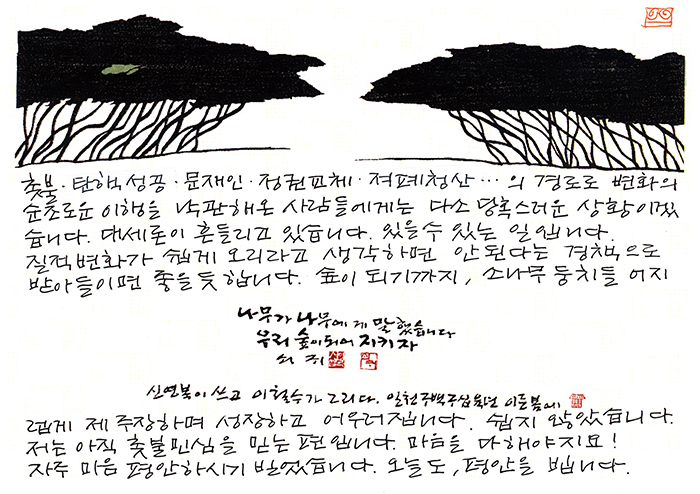 촛불·탄핵성공·문재인·정권교체·적폐청산…의 경로로 변화의
순조로운 이행을 낙관해온 사람들에게는 다소 당혹스러운 상황이겠
습니다. 대세론이 흔들리고 있습니다. 있을 수 있는 일입니다.
질적변화가 쉽게 오리라고 생각하면 안된다는 경책으로
받아들이면 좋을듯 합니다. 숲이 되기까지, 소나무 둥치들 어지
나무가 나무에게 말했습니다
우리 숲이되어 지키자
쇠귀
신영복이 쓰고 이철수가 그리다. 일천구백구십육년 이른봄에
럽게 제 주장하며 성장하고 어우러집니다. 쉽지 않았습니다.
저는 아직 촛불민심을 믿는 편입니다. 마음을 다해야지요!
자주 마음 평안하시기 빌었습니다. 오늘도, 평안을 빕니다.